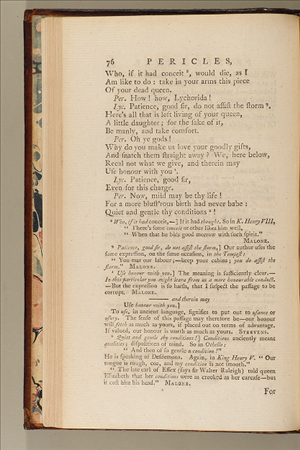 76 PERICLES,
Who, if it had conceit ⁸, would die, as I
Am like to do: take in your arms this piece
Of your dead queen.
Per. How! how, Lychorida!
Lyc. Patience, good sir, do not assist the storm ⁹.
Here's all that is left living of your queen,
A little daughter; for the sake of it,
Be manly, and take comfort.
Per. Oh ye gods!
Why do you make us love your goodly gifts,
And snatch them straight away? We, here below,
Recal not what we give, and therein may
Use honour with you ¹.
Lyc. Patience, good sir,
Even for this charge.
Per. Now, mild may be thy life!
For a more blust'rous birth had never babe:
Quiet and gentle thy conditions ²!
⁸ Who, if it had conceit,—] If it had thought. So in K. Henry VIII,
" There's some conceit or other likes him well,
" When that he bids good morrow with such spirit."
MALONE.
⁹ Patience, good sir, do not assist the storm.] Our author uses the
same expression, on the same occasion, in the Tempest:
" You mar our labour;—keep your cabins; you do assist the
storm." MALONE.
¹ Use honour with you.] The meaning is sufficiently clear.—
In this particular you might learn from us a more honourable conduct.
—But the expression is so harsh, that I suspect the passage to be
corrupt. MALONE.
——— and therein may
Use honour with you.]
To use, in ancient language, signifies to put out to usance or
usury. The sense of this passage may therefore be—our honour
will fetch as much as yours, if placed out on terms of advantage.
If valued, our honour is worth as much as yours. STEEVENS.
² Quiet and gentle thy conditions!] Conditions anciently meant
qualities; dispositions of mind. So in Othello:
" And then of so gentle a condition!"
He is speaking of Desdemona. Again, in King Henry V. " Our
tongue is rough, coz, and my condition is not smooth."
" The late earl of Essex (says sir Walter Raleigh) told queen
Elizabeth that her conditions were as crooked as her carcase—but
it cost him his head." MALONE.
For